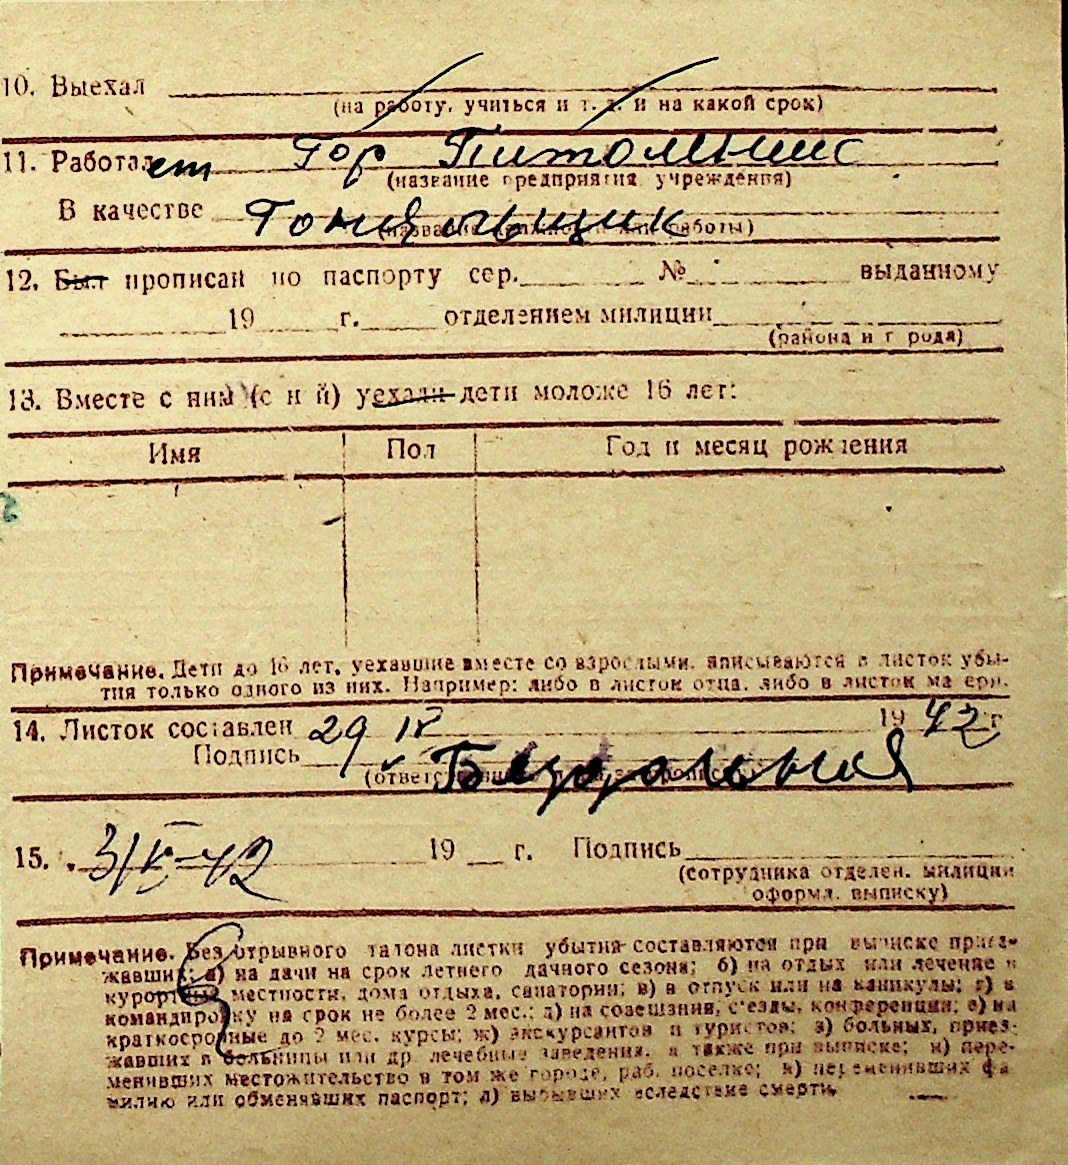 10. Выехал
(на работу, учиться и т. д. и на какой срок)
11. Работает Гор Питомник
(название предприятия, учреждения)
В качестве Гоняльщик
12. Был прописан по паспорту сер. № выданному
19 г. отделением милиции
(района и города)
13. Вместе с ним (с ней) уехали дети моложе 16 лет:
Имя Пол Год и месяц рождения
Примечание. Дети до 16 лет, уехавшие вместе со взрослыми, вписываются в листок убы-
тия только одного из них. Например: либо в листок отца, либо в листок матери.
14. Листок составлен 29 IV 1942 г
Подпись
15. 3/V-42 19 г. Подпись
(сотрудника отделен. милиции
оформл. выписку)
Примечание. Без отрывного талона листки убытия составляются при выписке приез-
жавших: а) на дачи на срок летнего дачного сезона; б) на отдых или лечение в
курортные местности, дома отдыха, санатории; в) в отпуск или на каникулы; г) в
командировку на срок не более 2 мес.; д) на совещания, съезды, конференции; е) на
краткосрочные до 2 мес. курсы; ж) экскурсантов и туристов; з) больных, приез-
жавших в больницы или др. лечебные заведения, а также при выписке; и) пере-
менивших местожительство в том же городе, раб. поселке; к) переменивших фа
милию или обменявших паспорт; л) выбывших вследствие смерти.